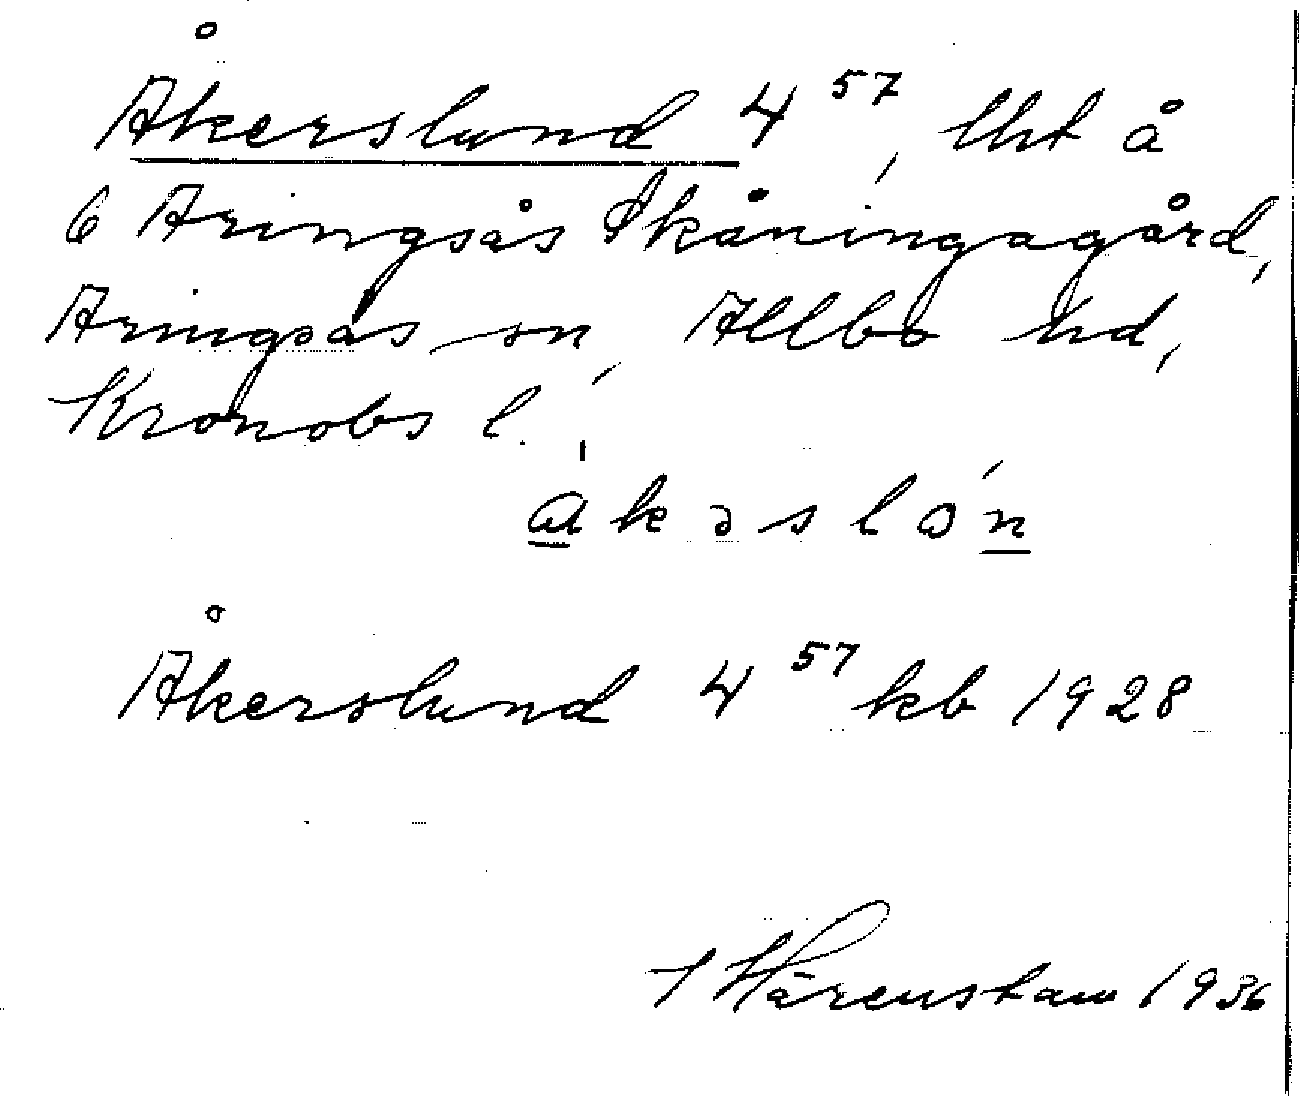 Åkerslund 4⁵⁷, lht å
6 Aringsås Skåningagård,
Aringsås sn, Allbo hd,
Kronobs l.
a̲kəslo̍n̲
Åkerslund 4⁵⁷ kb 1928
I Härenstam 1936